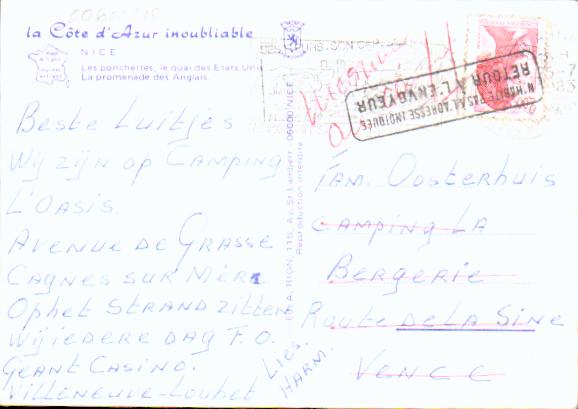 la Côte d'Azur inoubliable
NICE
Les ponchettes, le quai des Etats Unis
La promenade des Anglais.
Beste Luitjes
Wij zijn op Camping
L'Oasis.
Avenue de Grasse
Cagnes sur Mère
Ophet Strand zitten
Wij iedere dag T.O.
Geant Casino.
Villeneuve-Loubet
Lies.
Harm.
RION, 115, Av. St Lambert 06000 NICE
Reproduction interdite
N'HABITE PAS A L'ADRESSE INDIQUÉE
RETOUR A L'ENVOYEUR
Fam. Oosterhuis
Camping La
Bergerie
Route de la Sine
Vence